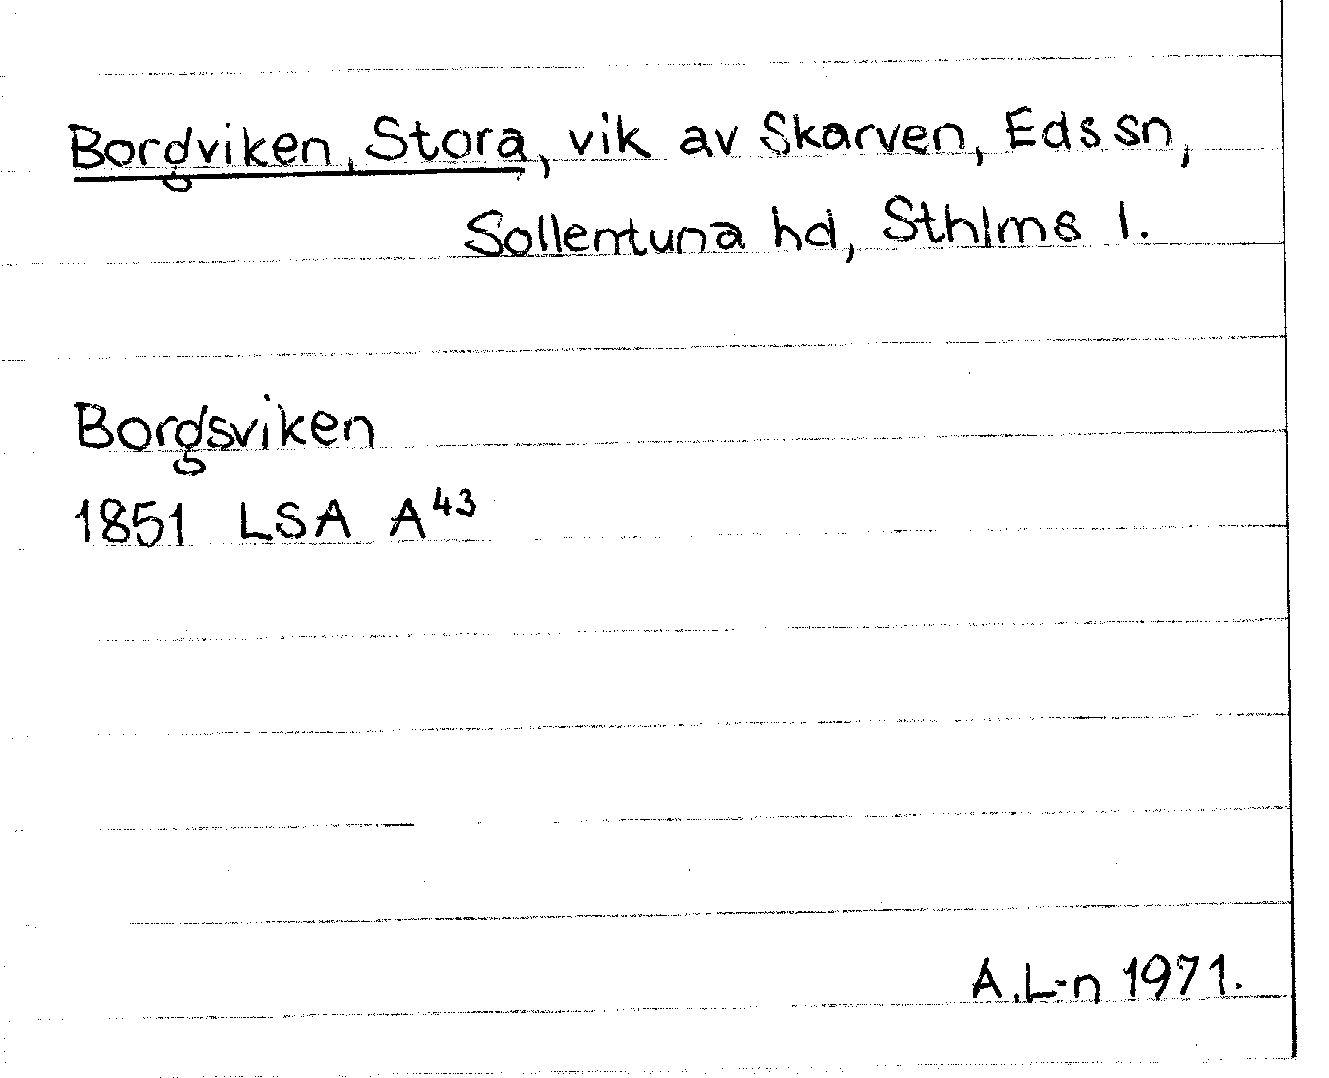 Borgviken, Stora, vik av Skarven, Eds sn,
Sollentuna hd, Sthlms l.
Borgsviken
1851 LSA A⁴³
A.L-n 1971.